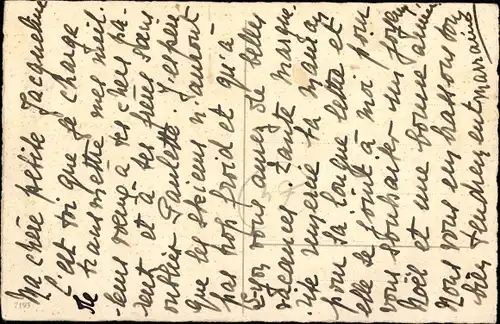 Ma chère petite Jacqueline
C'est toi que je charge
de transmettre mes meil-
leurs vœux à tes chers pa-
rent et à tes frères sans
oublier Paulette. J'espère
que les skieurs n'auront
pas trop froid et qu'à
Lyon vous aurez de belles
vacances. Tante Marque-
rite remercie ta maman
pour sa longue lettre et
elle se joint à moi pour
vous souhaiter un joyeux
Noël et une bonne année
Nous vous embrassons tous
bien tendrement
marraine
7195